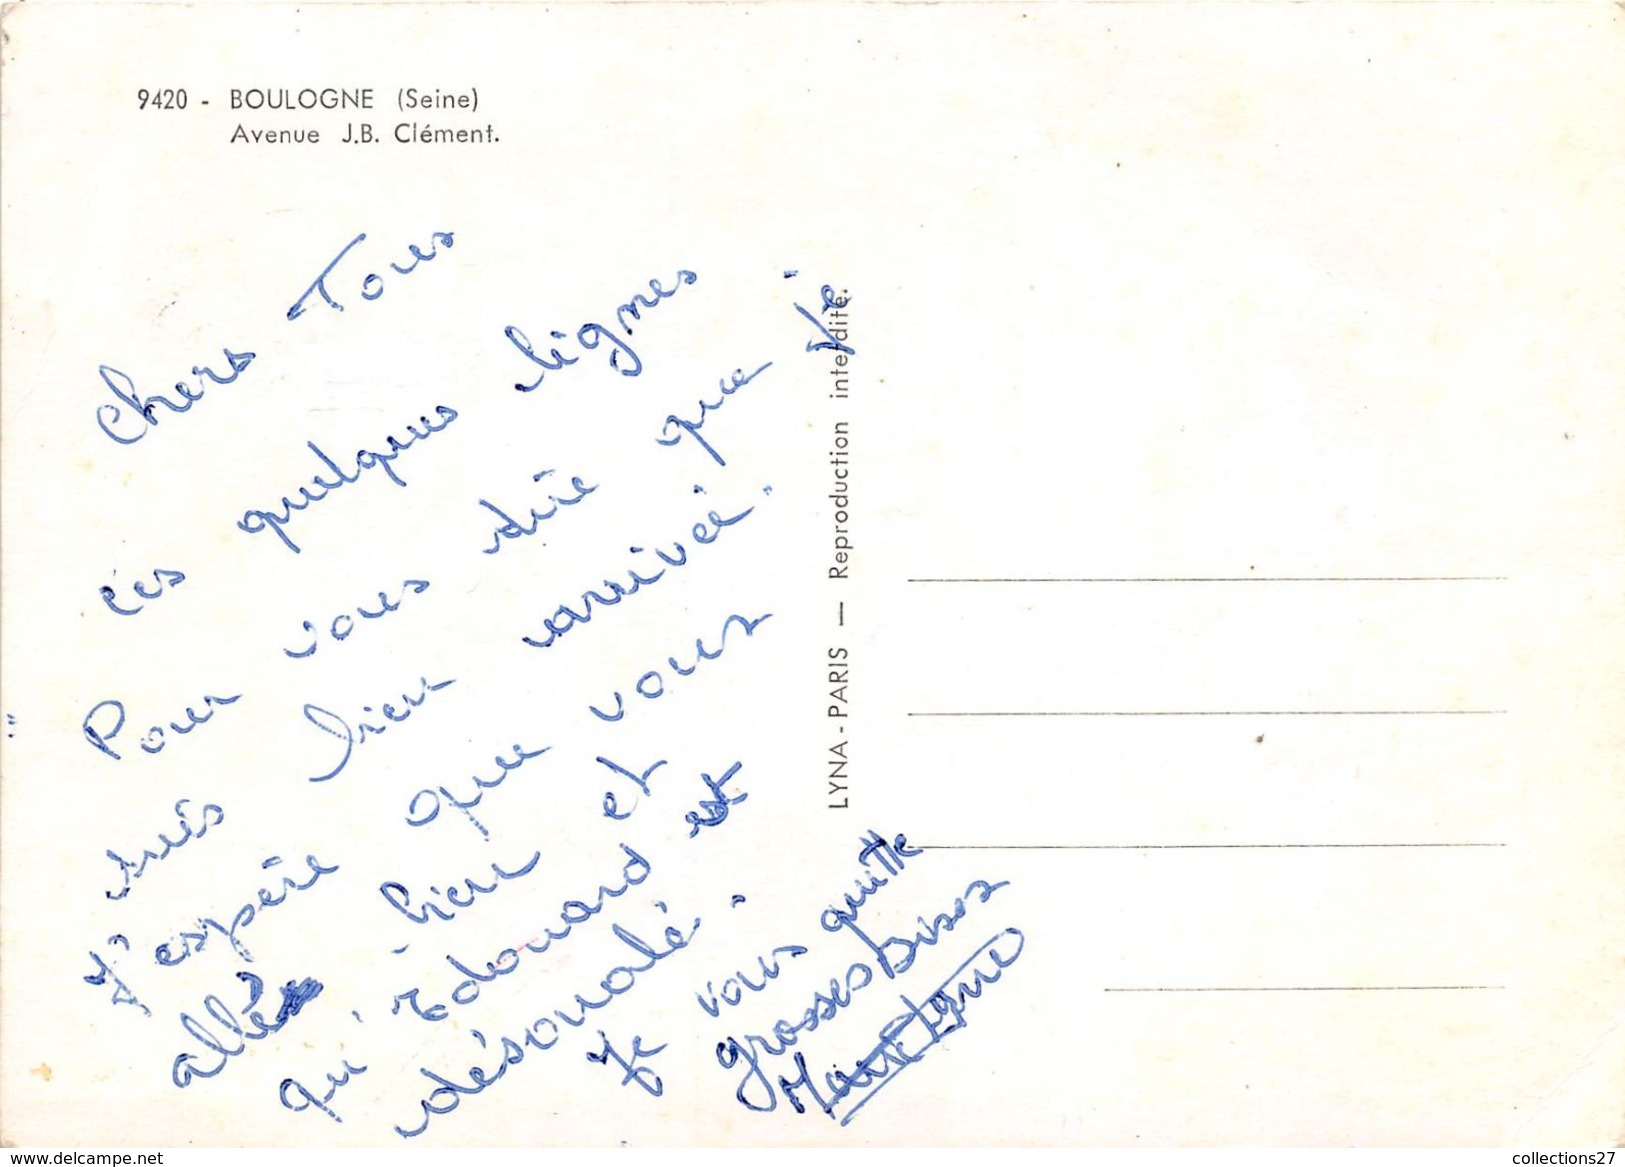 9420 - BOULOGNE (Seine)
Avenue J.B. Clément.
Chers Tous
ces quelques lignes
Pour vous dire que je
suis bien arrivée.
J'espère que vous
allés bien et
qu'Edouard est
désonalé.
Je vous quitte
grosses Bises
LYNA - PARIS — Reproduction interdite.
www.delcampe.net
collections27